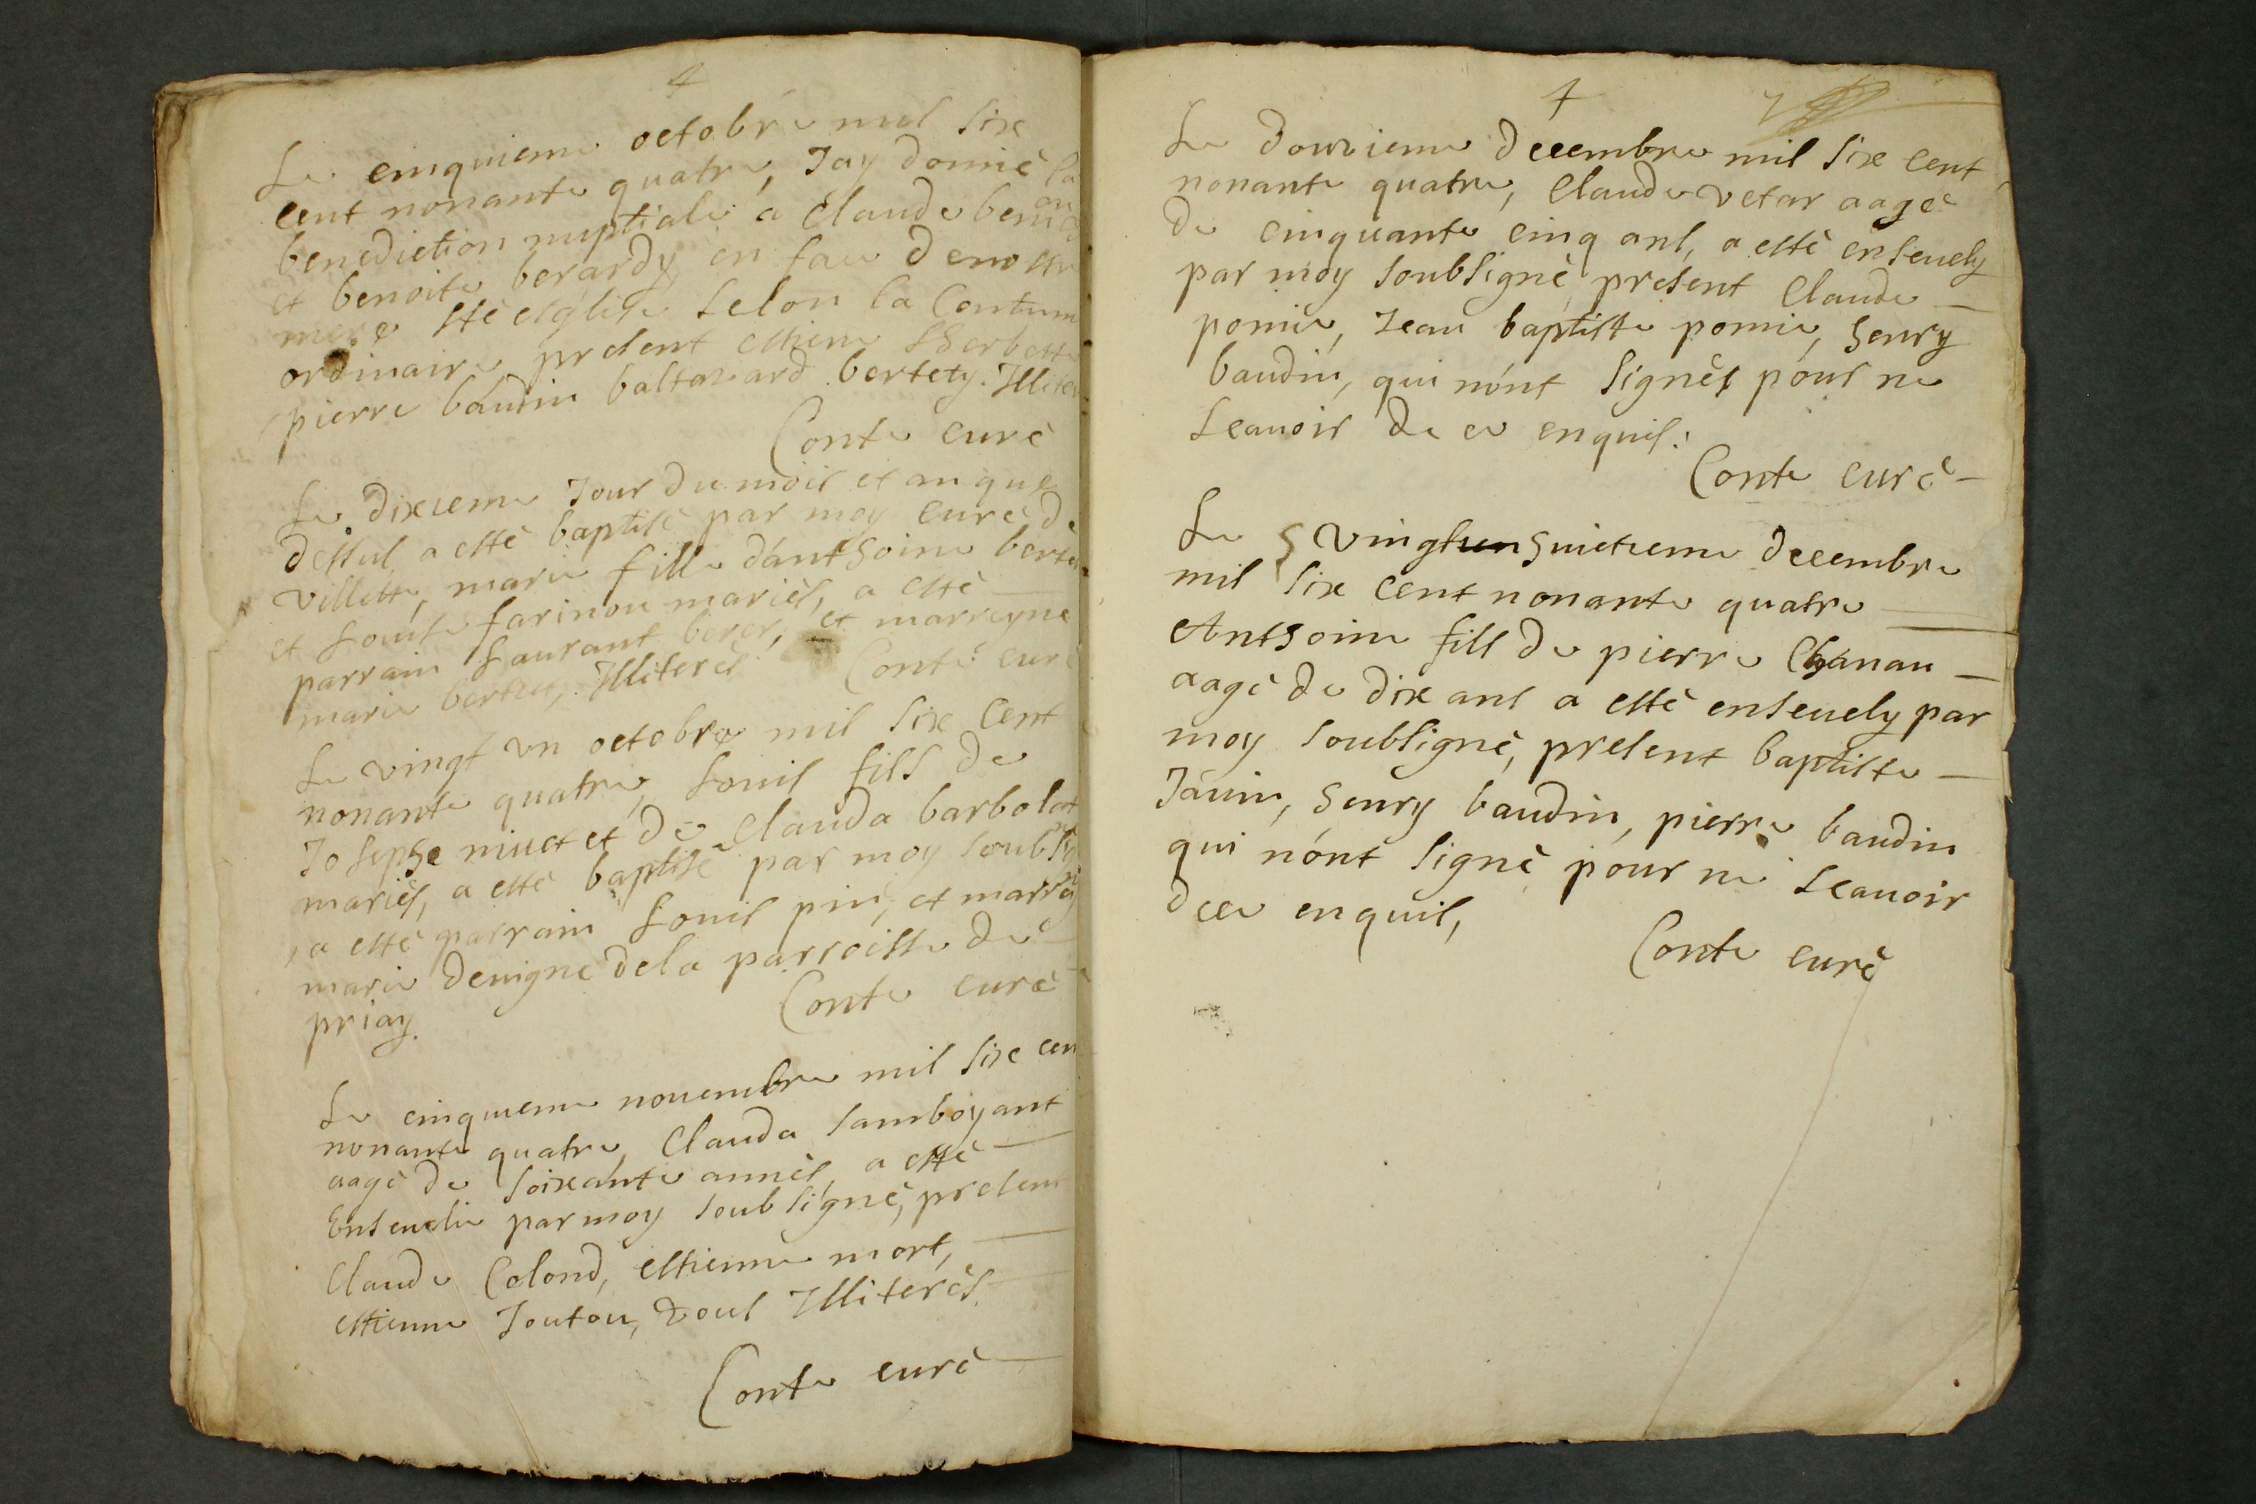 4
Le cinquieme octobre mil six
cent nonante quatre, Jay donné la
benediction nuptiale a Claude
et benoite berardy en face de nostre
mere ste esglise selon la Contume
ordinaire present estiene
pierre baudin baltazard bertety. Illiter
Conte curé
Le dixieme Jour du mois et an que
dessus a esté baptisé par moy curé de
villette, marie fille d'anthoine
et Louise farinon mariés, a esté
parrain Laurant berer, et marreyne
marie bertet, Illiterés Conte curé
Le vingt un octobre mil six cent
nonante quatre, Louis fils de
Josephe niuet et de Clauda barbolat
mariés, a esté baptisé par moy soubsig
, a esté parrain Louis pin, et marrey
marie devigne dela parroisse de
priay. Conte curé
Le cinquieme nouembre mil six cen
nonante quatre, Clauda Samboyant
aagé de soixante annés, a esté
Enseuelie par moy soubsigné, present
Claude Colond, estienne mort,
estienne Joutou, tous Illiterés
Conte curé
4
Le douzieme decembre mil six cent
nonante quatre, Claude vetar aagé
de cinquante cinq ans, a esté enseuely
par moy soubsigné present Claude
pomie, Jean baptiste pomie, henry
baudin, qui n'ont signés pour ne
scauoir de ce enquis:
Conte curé
Le vingt huictieme decembre
mil six cent nonante quatre
Anthoine fils de pierre Chanau
aagé de dix ans a esté enseuely par
moy soubsigné, present baptiste
Janin, henry baudin, pierre baudin
qui n'ont signé pour ne scauoir
dece enquis,
Conte curé